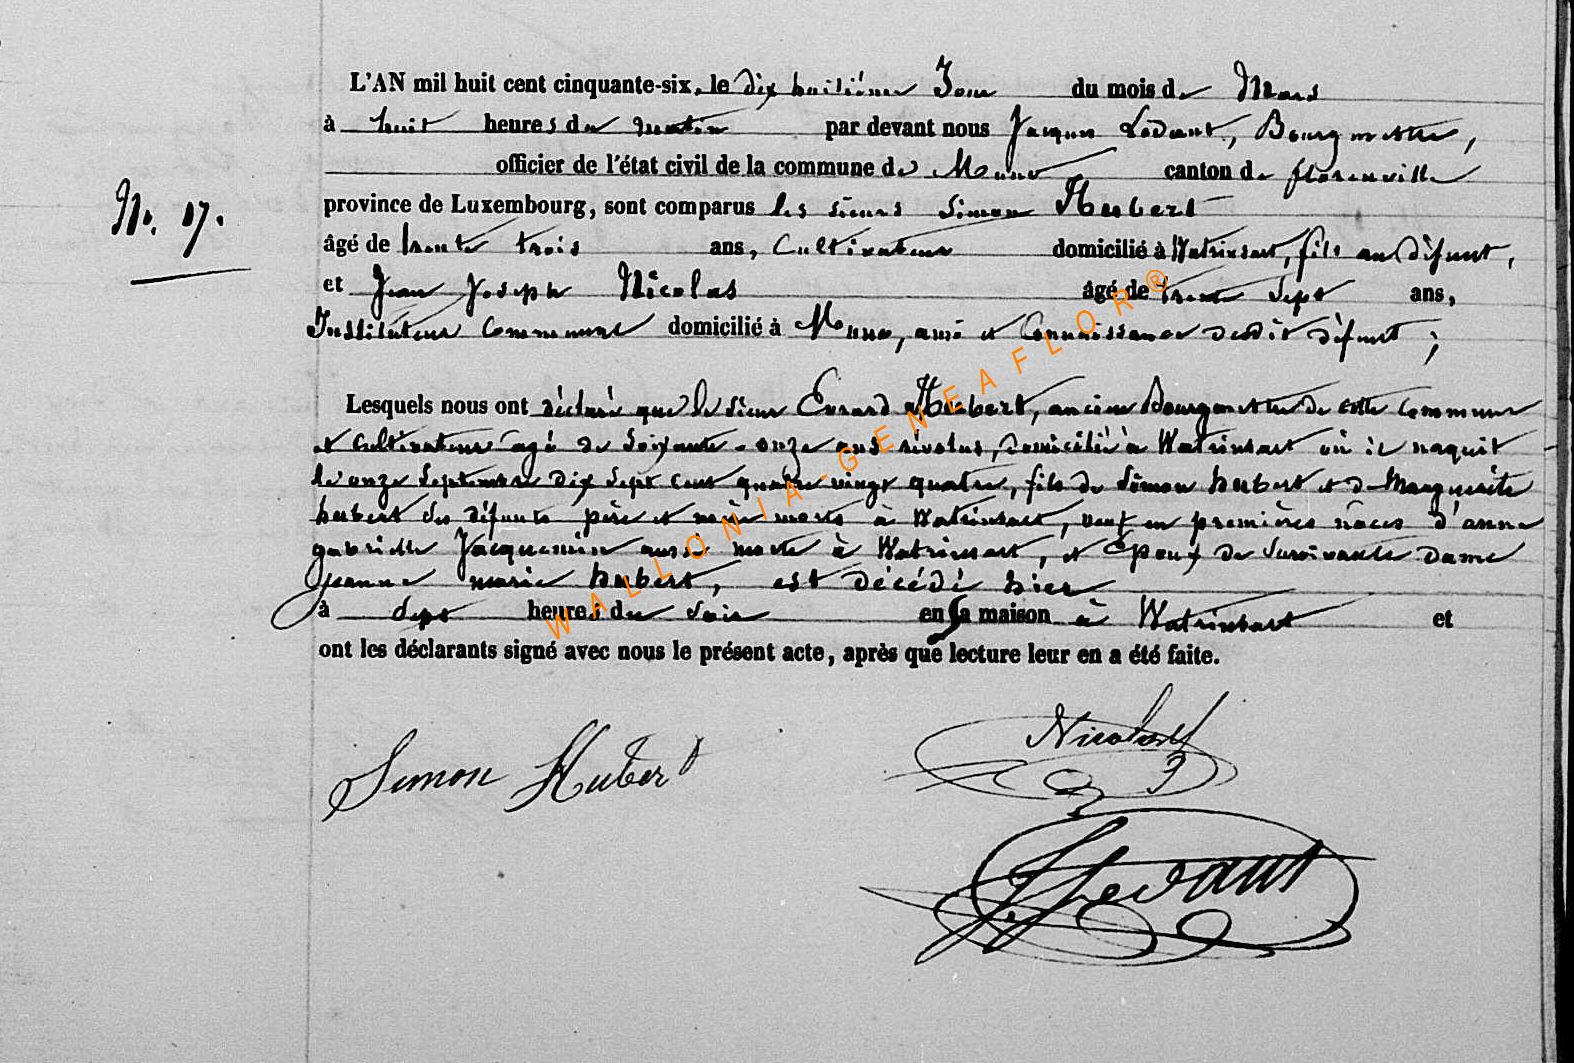 L'AN mil huit cent cinquante-six, le dix huitième Jour du mois de Mars
à huit heures du matin par devant nous Jacques Lodant, Bourgmestre,
officier de l'état civil de la commune de Muno canton de florenville
No. 17.
province de Luxembourg, sont comparus les sieurs Simon Hubert
âgé de trente trois ans, Cultivateur domicilié à Watrinsart, fils au défunt,
et Jean Joseph Nicolas âgé de trente sept ans,
Instituteur Communal domicilié à Muno, ami et Connaissance dudit défunt ;
Lesquels nous ont déclaré que le sieur Evrard Hubert, ancien Bourgmestre de cette Commune
et Cultivateur âgé de Soixante-onze ans révolus, domicilié à Watrinsart où il naquit
le onze Septembre dix sept cent quatre vingt quatre, fils de Simon hubert et de Marguerite
hubert des défunts père et mère morts à Watrinsart, veuf en premières nôces d'anne
gabrielle Jacquemin aussi morte à Watrinsart, et Epoux de Survivante dame
jeanne marie hubert, est décédé hier
à sept heures du soir en sa maison à Watrinsart et
ont les déclarants signé avec nous le présent acte, après que lecture leur en a été faite.
WALLONIA-GENEAFLOR®
Nicolas
Simon Hubert